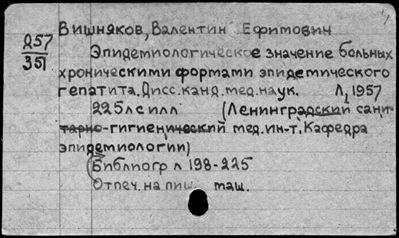 Вишняков, Валентин Ефимович
Д57
351
Эпидемиологическое значение больных
хроническими формами эпидемического
гепатита. Дисс. канд. мед. наук. Л, 1957
225 лс илл (Ленинградский сани-
тарно-гигиенический мед. ин-т. Кафедра
эпидемиологии)
(Библиогр л 198-225
Отпеч. на пиш. маш.